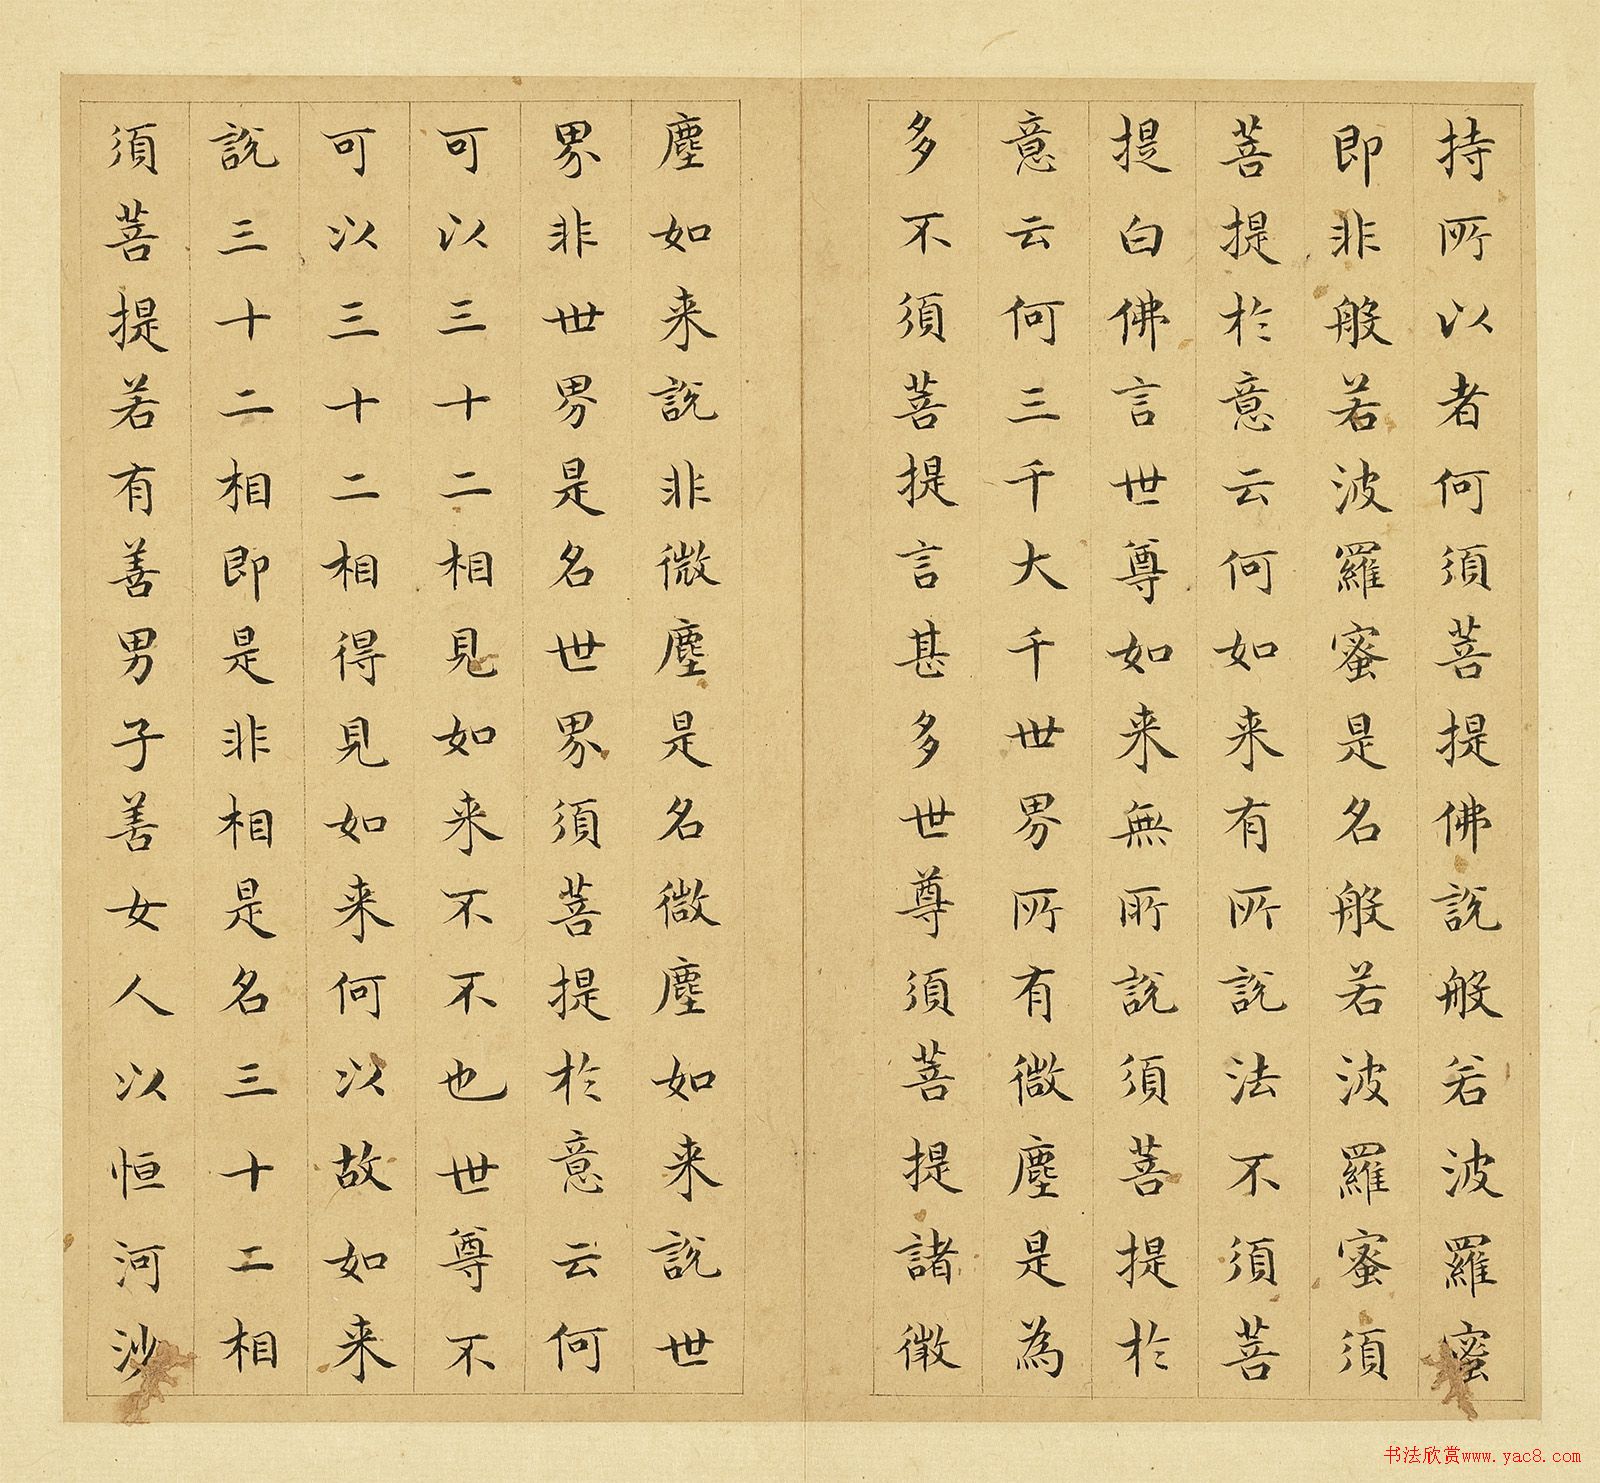 持所以者何須菩提佛說般若波羅蜜
即非般若波羅蜜是名般若波羅蜜須
菩提於意云何如来有所說法不須菩
提白佛言世尊如来無所說須菩提於
意云何三千大千世界所有微塵是為
多不須菩提言甚多世尊須菩提諸微
塵如来說非微塵是名微塵如来說世
界非世界是名世界須菩提於意云何
可以三十二相見如来不不也世尊不
可以三十二相得見如来何以故如来
說三十二相即是非相是名三十二相
須菩提若有善男子善女人以恒河沙
书法欣赏www.yac8.com